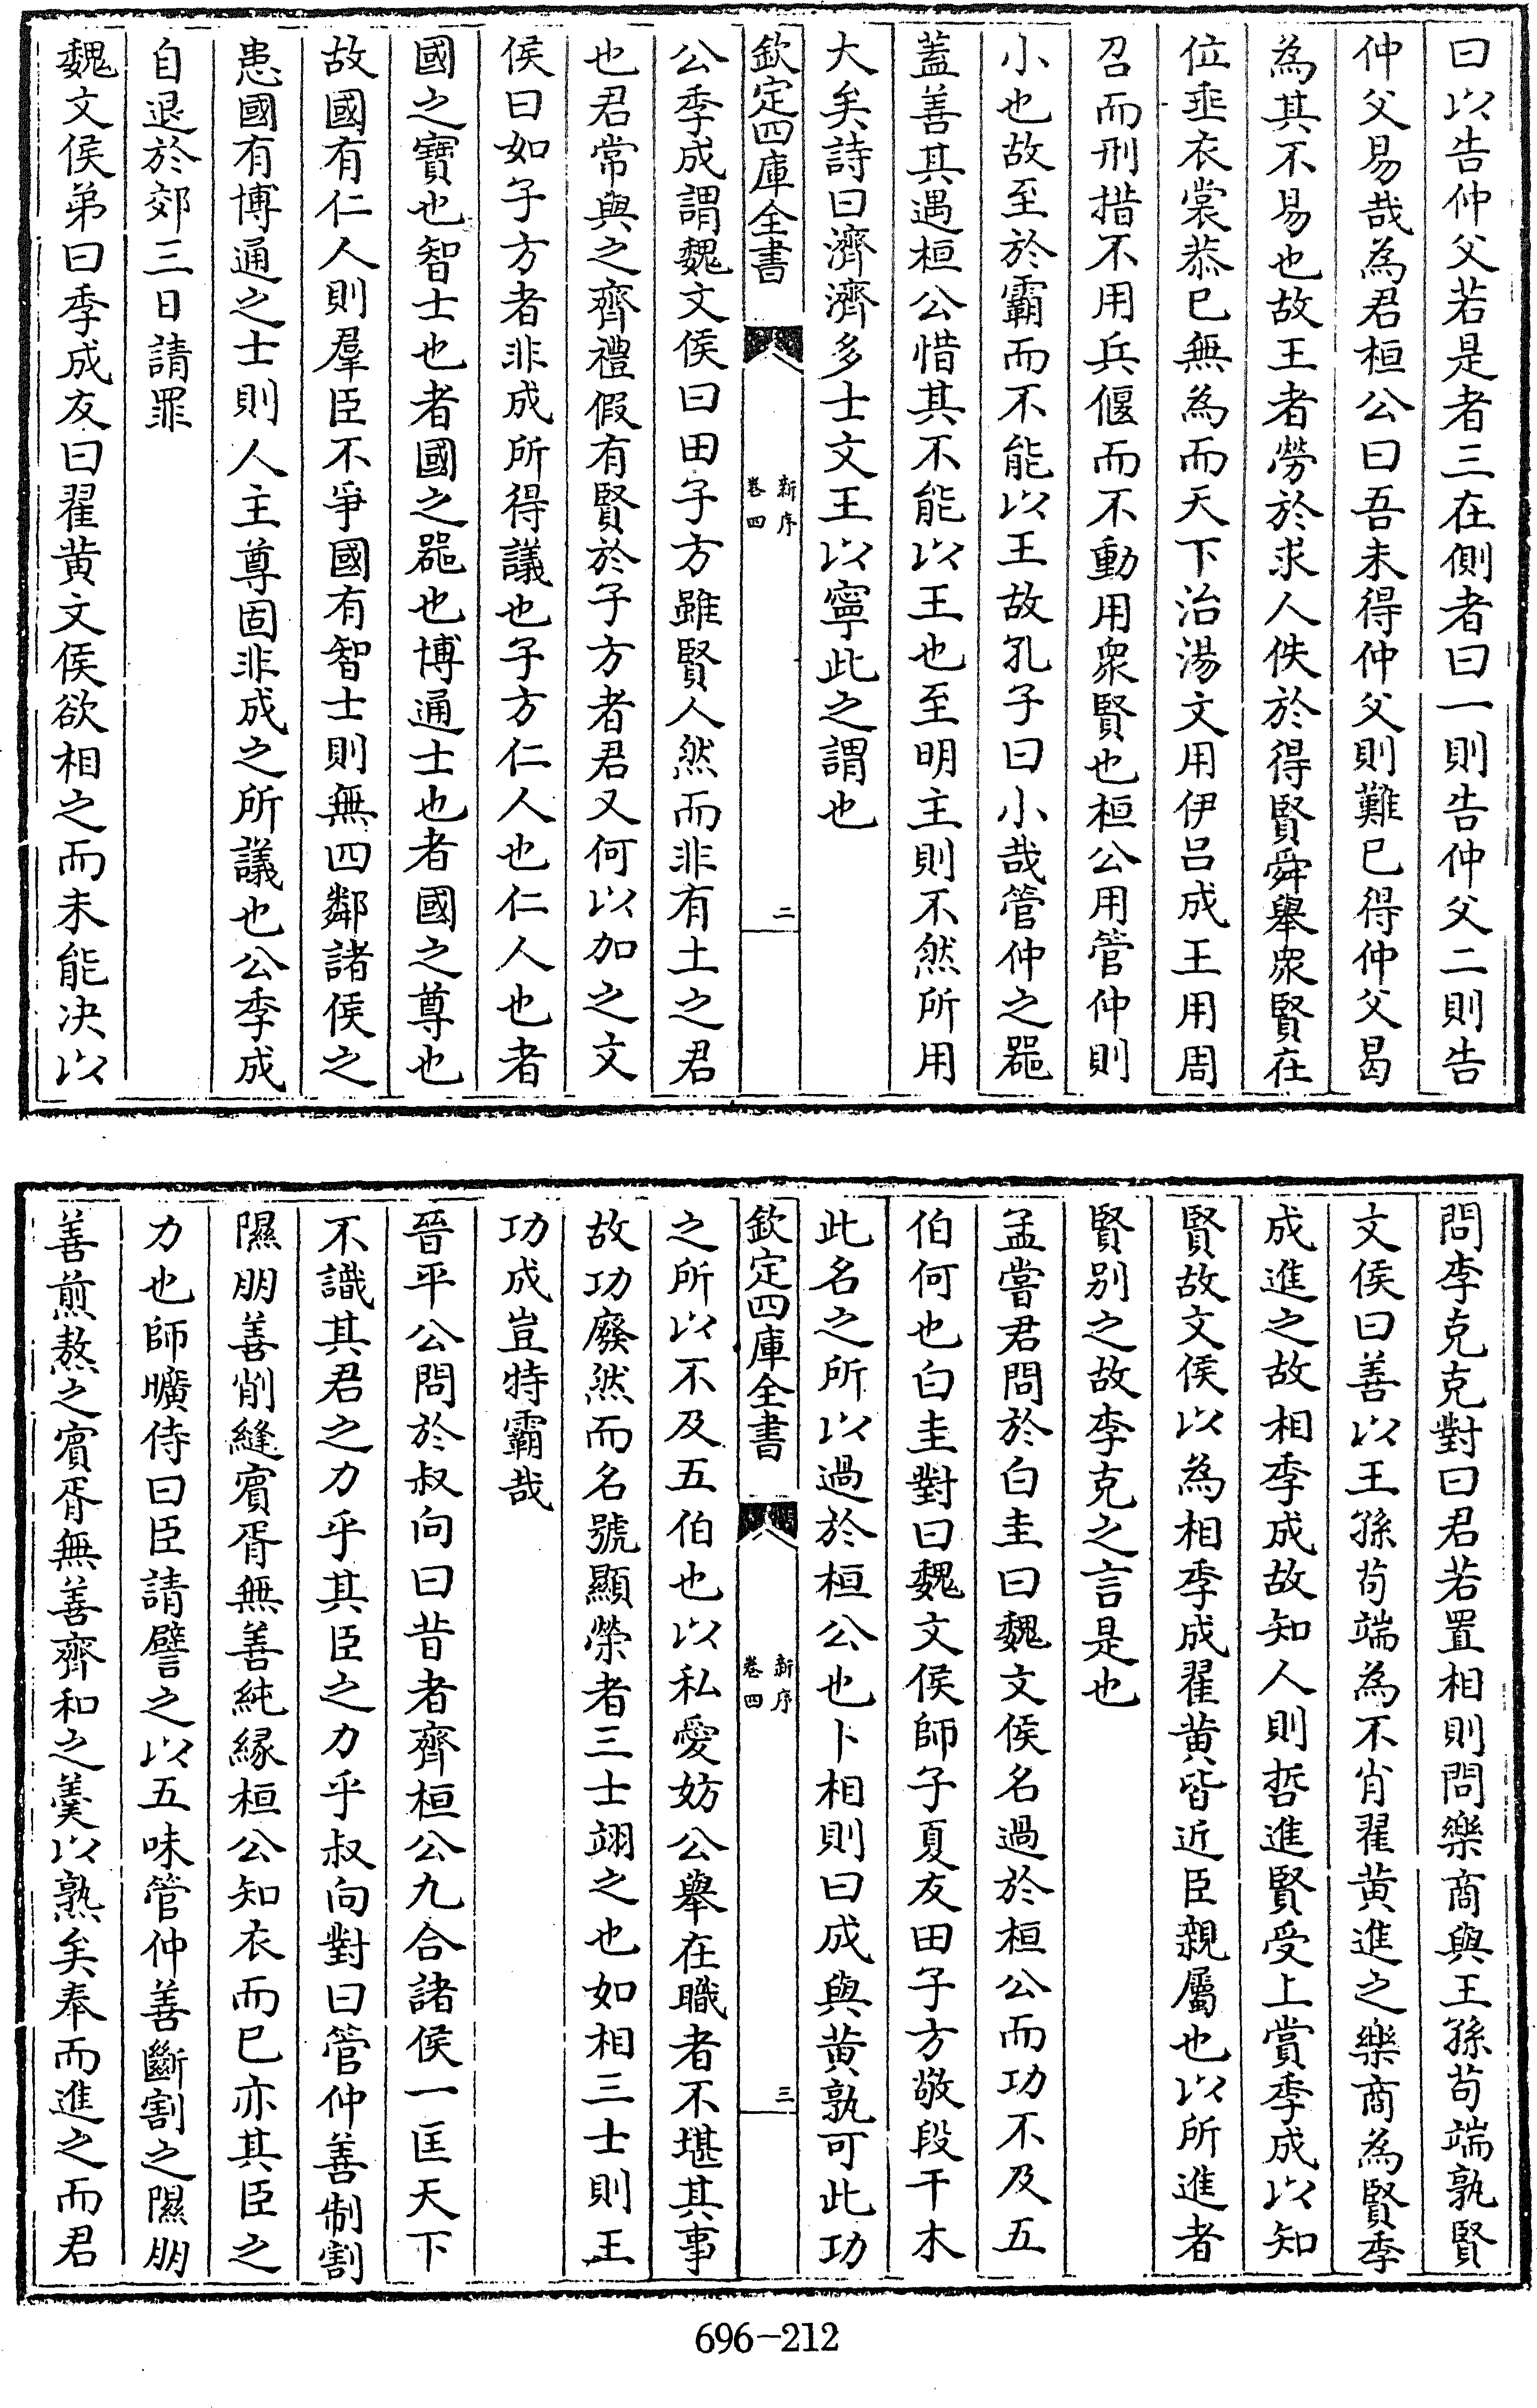 曰以告仲父若是者三在側者曰一則告仲父二則告
仲父易哉為君桓公曰吾未得仲父則難已得仲父曷
為其不易也故王者勞於求人佚於得賢舜舉衆賢在
位垂衣裳恭已無為而天下治湯文用伊吕成王用周
召而刑措不用兵偃而不動用衆賢也桓公用管仲則
小也故至於霸而不能以王故孔子曰小哉管仲之器
蓋善其遇桓公惜其不能以王也至明主則不然所用
大矣詩曰濟濟多士文王以寧此之謂也
欽定四庫全書
新序
卷四
二
公季成謂魏文侯曰田子方雖賢人然而非有土之君
也君常與之齊禮假有賢於子方者君又何以加之文
侯曰如子方者非成所得議也子方仁人也仁人也者
國之寶也智士也者國之器也博通士也者國之尊也
故國有仁人則羣臣不爭國有智士則無四鄰諸侯之
患國有博通之士則人主尊固非成之所議也公季成
自退於郊三日請罪
魏文侯弟曰季成友曰翟黄文侯欲相之而未能决以
問李克克對曰君若置相則問樂商與王孫茍端孰賢
文侯曰善以王孫茍端為不肖翟黄進之樂商為賢季
成進之故相季成故知人則哲進賢受上賞季成以知
賢故文侯以為相季成翟黄皆近臣親屬也以所進者
賢别之故李克之言是也
孟嘗君問於白圭曰魏文侯名過於桓公而功不及五
伯何也白圭對曰魏文侯師子夏友田子方敬段干木
此名之所以過於桓公也卜相則曰成與黄孰可此功
欽定四庫全書
新序
卷四
三
之所以不及五伯也以私愛妨公舉在職者不堪其事
故功廢然而名號顯榮者三士翊之也如相三士則王
功成豈特霸哉
晉平公問於叔向曰昔者齊桓公九合諸侯一匡天下
不識其君之力乎其臣之力乎叔向對曰管仲善制割
隰朋善削縫賔胥無善純縁桓公知衣而已亦其臣之
力也師曠侍曰臣請譬之以五味管仲善斷割之隰朋
善煎熬之賔胥無善齊和之羹以熟矣奉而進之而君
696-212